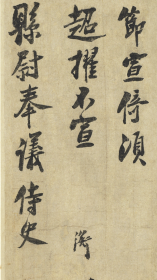 節宣倚須
超擢不宣
縣尉奉議侍史